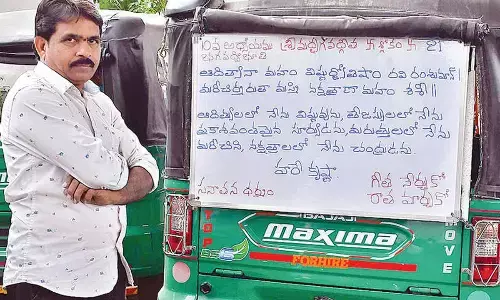 10వ అధ్యాయము శ్రీమద్భగవద్గీత 卐 శ్లోకం 卐 21
ఆదిత్యానా మహం విష్ణుర్జ్యోతిషాం రవి రంశుమాన్ |
మరీచిర్మరుతా మస్మి నక్షత్రాణా మహం శశీ ||
ఆదిత్యులలో నేను విష్ణువును, తేజస్సులలో నేను
ప్రకాశవంతమైన సూర్యుడను, మరుత్తులలో నేను
మరీచిని, నక్షత్రాలలో నేను చంద్రుడను.
హరే కృష్ణా
సనాతన ధర్మం గీత నేర్చుకో
రాత మార్చుకో
BAJAJ
Maxima
FORHIRE
TOP
MOVE